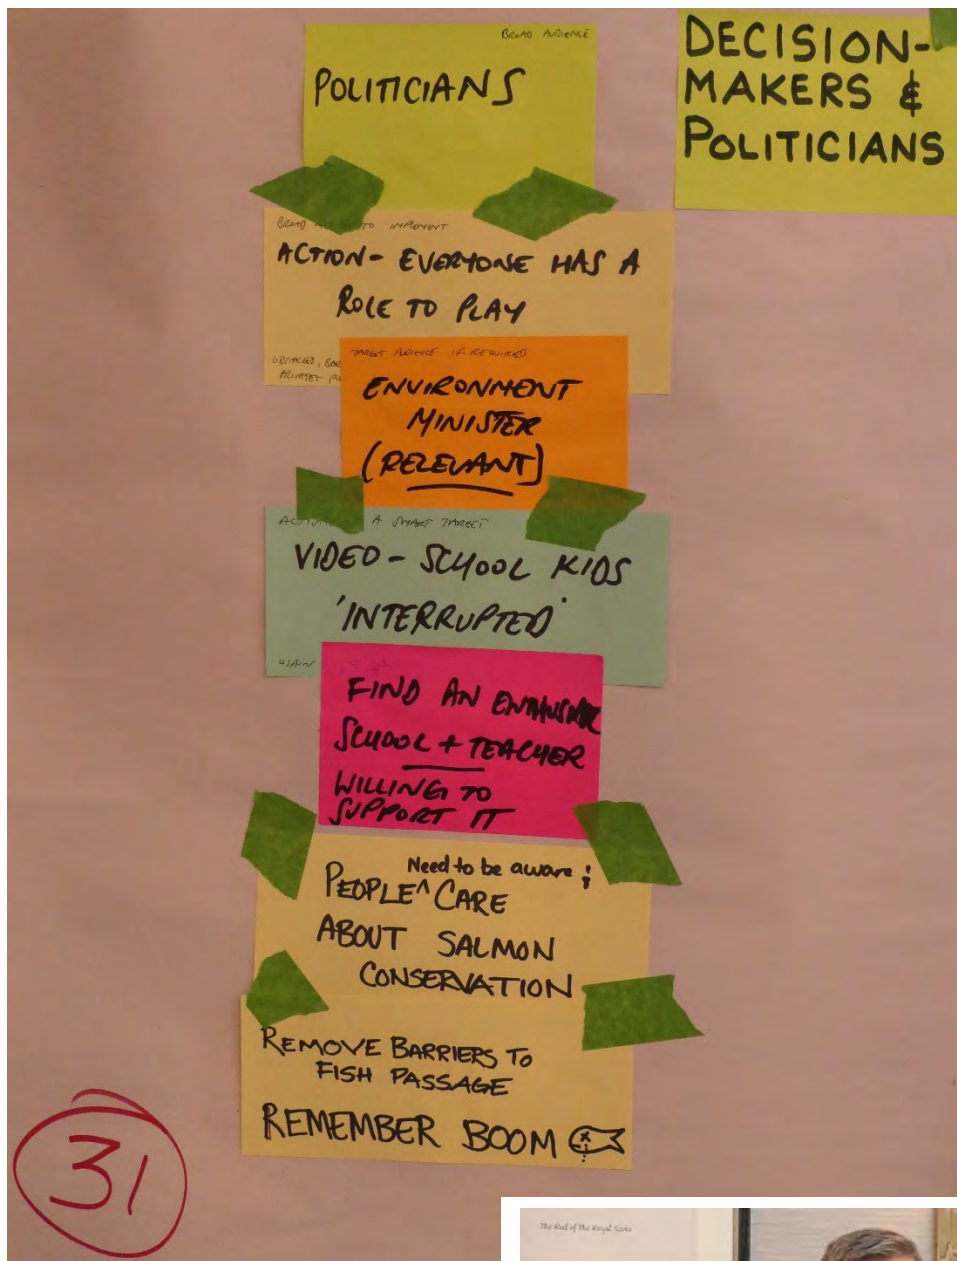 BROAD AUDIENCE
POLITICIANS
DECISION-
MAKERS &
POLITICIANS
BROAD TO IMPLEMENT
ACTION - EVERYONE HAS A
ROLE TO PLAY
OBSTACLES,
TARGET AUDIENCE IF REQUIRED
ENVIRONMENT
MINISTER
(RELEVANT)
A SMART TARGET
VIDEO - SCHOOL KIDS
'INTERRUPTED'
FIND AN
SCHOOL + TEACHER
WILLING TO
SUPPORT IT
Need to be aware &
PEOPLE ^ CARE
ABOUT SALMON
CONSERVATION
REMOVE BARRIERS TO
FISH PASSAGE
REMEMBER BOOM
31
The Reel of The Royal Scots